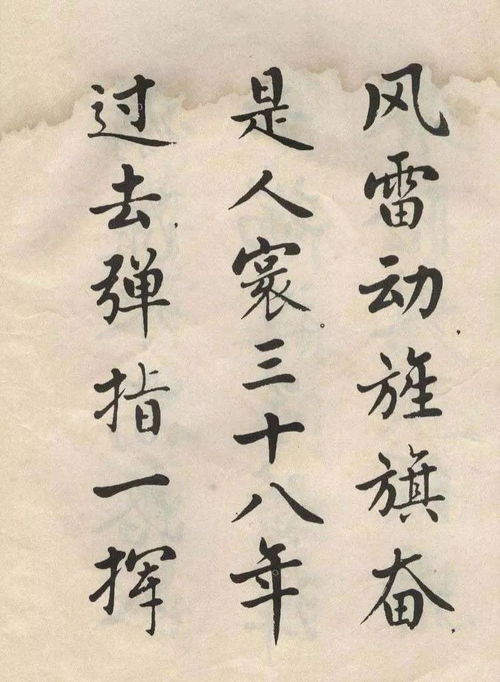 风雷动，旌旗奋，
是人寰。三十八年
过去，弹指一挥